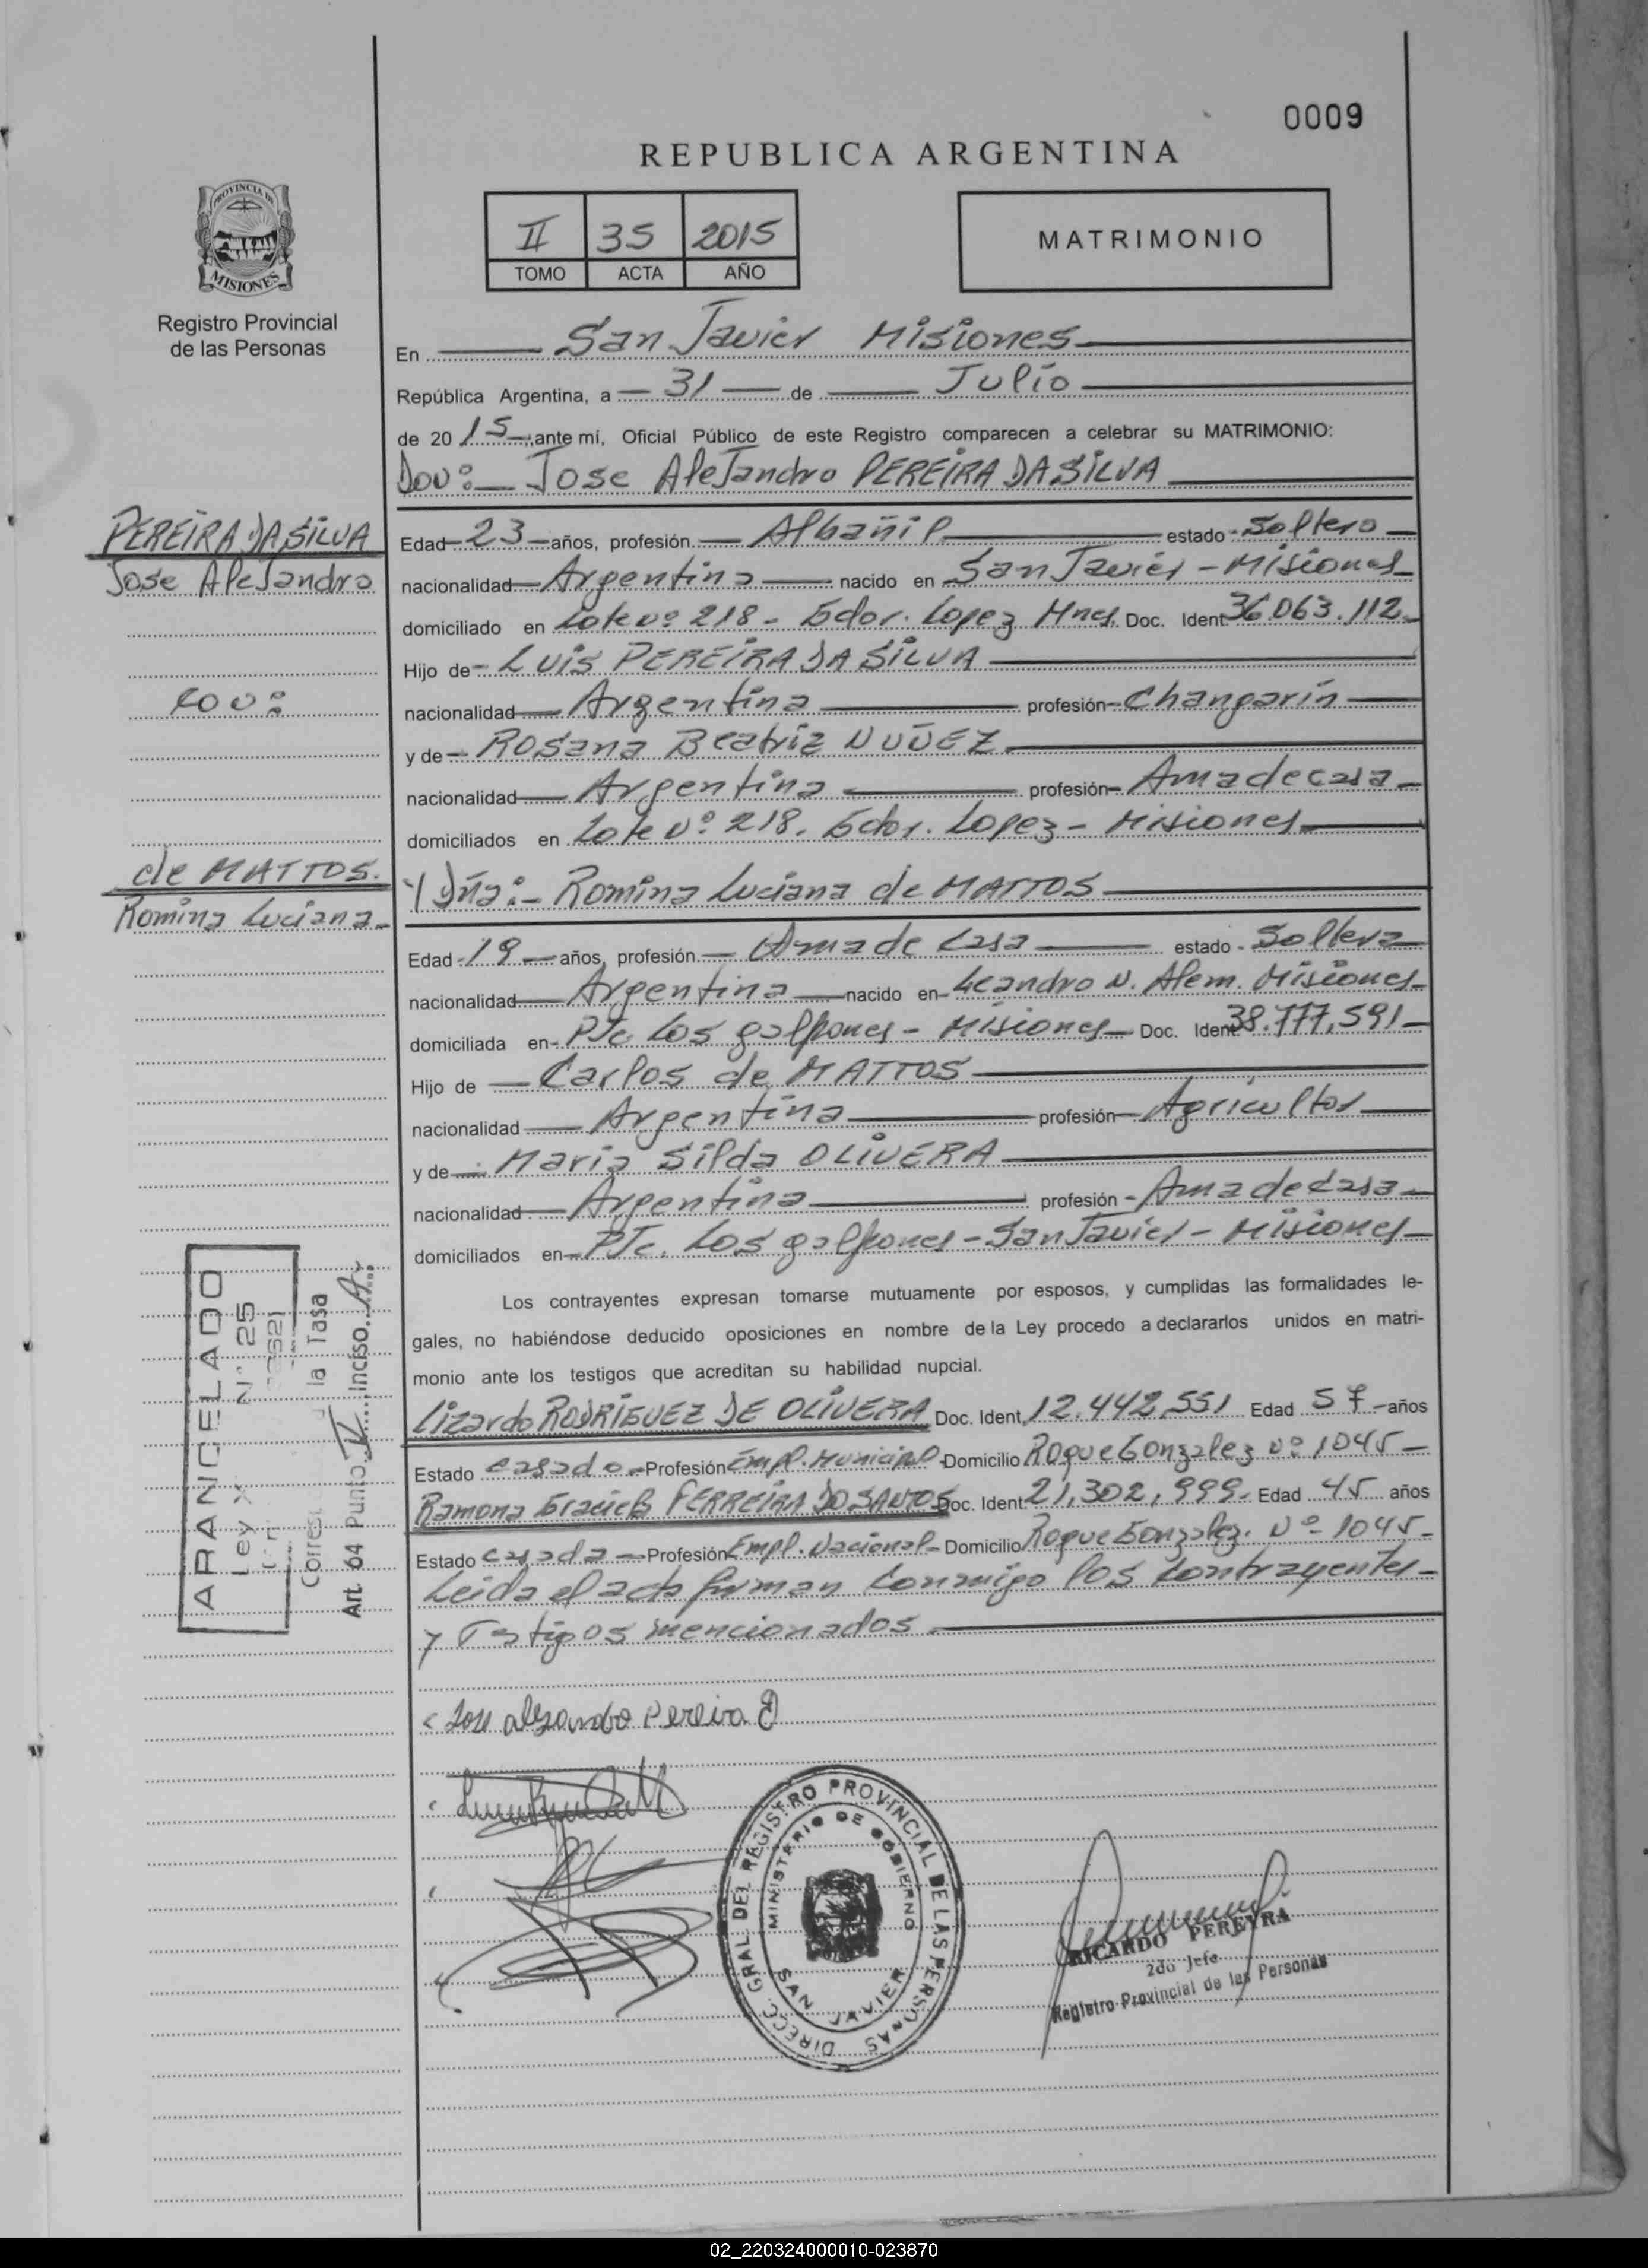 0009
REPUBLICA ARGENTINA
PROVINCIA DE
MISIONES
Registro Provincial
de las Personas
II 35 2015
TOMO ACTA AÑO
MATRIMONIO
En San Javier Misiones
República Argentina, a 31 de Julio
de 20 15, ante mí, Oficial Público de este Registro comparecen a celebrar su MATRIMONIO:
Don: Jose Alejandro PEREIRA DA SILVA
PEREIRA DA SILVA
Jose Alejandro
con:
de MATTOS.
Romina Luciana
Edad 23 años, profesión Albañil estado Soltero
nacionalidad Argentina nacido en San Javier - Misiones
domiciliado en Lote Nº 218 - Gdor. Lopez Mnes. Doc. Ident 36.063.112
Hijo de Luis PEREIRA DA SILVA
nacionalidad Argentina profesión Changarín
y de Rosana Beatriz NUÑEZ
nacionalidad Argentina profesión Ama de casa
domiciliados en Lote Nº 218. Gdor. Lopez - Misiones
Y Dña:- Romina Luciana de MATTOS
Edad 19 años, profesión Ama de Casa estado Soltera
nacionalidad Argentina nacido en Leandro N. Alem. Misiones
domiciliada en Pje Los galpones - Misiones Doc. Ident 38.777.591
Hijo de Carlos de MATTOS
nacionalidad Argentina profesión Agricultor
y de Maria Silda OLIVERA
nacionalidad Argentina profesión Ama de Casa
domiciliados en Pje. Los galpones - San Javier - Misiones
Los contrayentes expresan tomarse mutuamente por esposos, y cumplidas las formalidades le-
gales, no habiéndose deducido oposiciones en nombre de la Ley procedo a declararlos unidos en matri-
monio ante los testigos que acreditan su habilidad nupcial.
Lizardo RODRIGUEZ DE OLIVERA Doc. Ident. 12.442.551 Edad 57 años
Estado casado Profesión Empl. Municipal Domicilio Roque Gonzalez Nº 1045
Ramona Graciela FERREIRA DO SANTOS Doc. Ident. 21.302.999 Edad 45 años
Estado casada Profesión Empl. Nacional Domicilio Roque Gonzalez. Nº 1045
Leida el acta firman conmigo los contrayentes
y Testigos mencionados
ARANCELADO
Ley X Nº 25
la Tasa
Art. 64 Punto IV Inciso A
Jose alejandro Pereira D
DIRECC. GRAL. DEL REGISTRO PROVINCIAL DE LAS PERSONAS
MINISTERIO DE GOBIERNO
SAN JAVIER
RICARDO PEREYRA
2do Jefe
Registro Provincial de las Personas
02_220324000010-023870